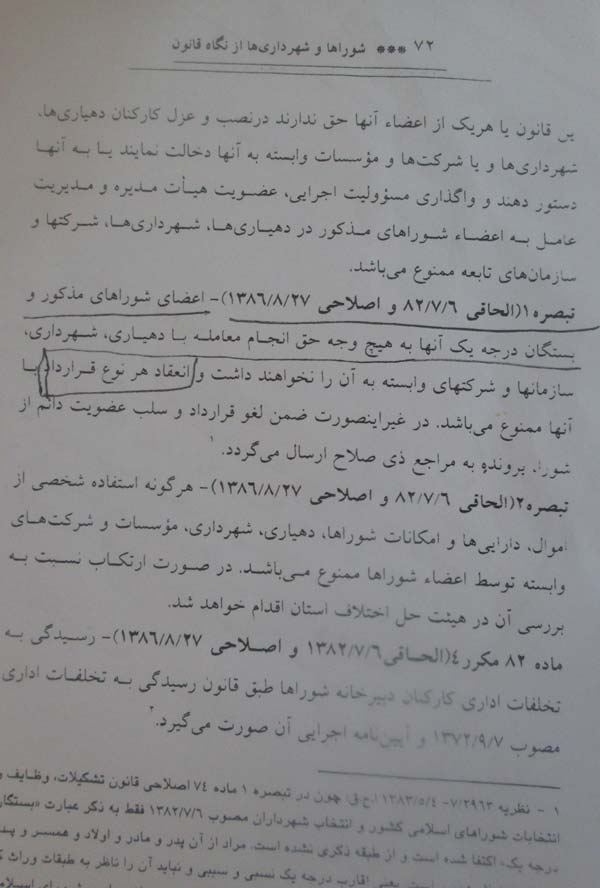 ۷۲ *** شوراها و شهرداری‌ها از نگاه قانون
یـن قانون یا هریک از اعضاء آنها حق ندارند درنصب و عزل کارکنان دهیاری‌ها،
شهرداری‌ها و یا شرکت‌ها و مؤسسات وابسته به آنها دخالت نمایند یـا به آنهـا
دستور دهند و واگذاری مسؤولیت اجرایی، عضـویت هیـأت مـدیره و مـدیریت
عامـل بـه اعضـاء شـوراهای مـذکور در دهیـاری‌هـا، شهرداری‌هـا، شـرکتها و
سازمان‌های تابعه ممنوع می‌باشد.
تبصره۱(الحاقی ۸۲/۷/۶ و اصلاحی ۱۳۸۶/۸/۲۷)- اعضای شوراهای مذکور و
بستگان درجه یک آنها به هیچ وجه حق انجام معامله بـا دهیاری، شـهرداری،
سازمانها و شرکتهای وابسته به آن را نخواهند داشت و انعقاد هر نوع قـرارداد بـا
آنها ممنوع می‌باشد. در غیراینصورت ضمن لغو قرارداد و سلب عضویت دائم از
شورا، پرونده به مراجع ذی صلاح ارسال می‌گردد.۱
تبصره۲(الحاقی ۸۲/۷/۶ و اصلاحی ۱۳۸۶/۸/۲۷)- هرگونه استفاده شخصی از
اموال، دارایی‌ها و امکانات شوراها، دهیاری، شهرداری، مؤسسات و شرکت‌هـای
وابسته توسط اعضاء شوراها ممنوع مـی‌باشـد. در صـورت ارتکـاب نسـبت بـه
بررسی آن در هیئت حل اختلاف استان اقدام خواهد شد.
ماده ۸۲ مکرر٤(الحـاقی۱۳۸۲/۷/۶ و اصـلاحی ۱۳۸۶/۸/۲۷)- رسـیدگی بـه
تخلفات اداری کارکنان دبیرخانه شوراها طبق قانون رسیدگی بـه تخلفـات اداری
مصوب ۱۳۷۲/۹/۷ و آیین‌نامه اجرایی آن صورت می‌گیرد.۲
۱ - نظریه ۷/۲۹۶۳- ۱۳۸۳/۵/۴ ا.ح.ق: چون در تبصره ۱ ماده ۷٤ اصلاحی قانون تشکیلات، وظایف و
انتخابات شوراهای اسلامی کشور و انتخاب شهرداران مصوب ۱۳۸۲/۷/۶ فقط به ذکر عبارت «بستگان
درجه یک» اکتفا شده است و از طبقه ذکری نشده است. مراد از آن پدر و مادر و اولاد و همسـر و
یعنی اقارب درجه یک نسبی و سببی و نباید آن را ناظر به طبقات وراث